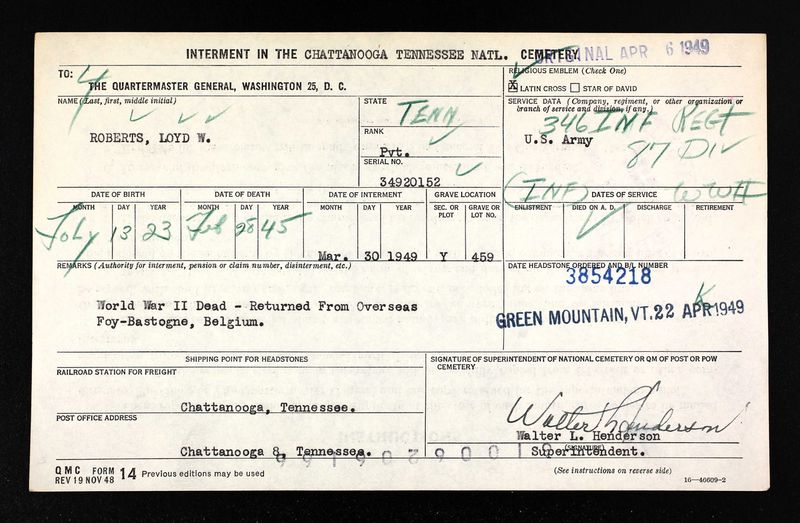 INTERMENT IN THE CHATTANOOGA TENNESSEE NATL. CEMETERY
ORIGINAL APR 6 1949
TO:
4
THE QUARTERMASTER GENERAL, WASHINGTON 25, D. C.
RELIGIOUS EMBLEM (Check One)
X LATIN CROSS STAR OF DAVID
NAME (Last, first, middle initial)
ROBERTS, LOYD W.
STATE
TENN
RANK
Pvt.
SERIAL NO.
34920152
SERVICE DATA (Company, regiment, or other organization or
branch of service and division, if any.)
346 INF REGT
U.S. Army
87 DIV
(INF) WWII
DATE OF BIRTH
MONTH DAY YEAR
July 13 23
DATE OF DEATH
MONTH DAY YEAR
Feb 28 45
DATE OF INTERMENT
MONTH DAY YEAR
Mar. 30 1949
GRAVE LOCATION
SEC. OR PLOT GRAVE OR LOT NO.
Y 459
DATES OF SERVICE
ENLISTMENT DIED ON A. D. DISCHARGE RETIREMENT
REMARKS (Authority for interment, pension or claim number, disinterment, etc.)
World War II Dead - Returned From Overseas
Foy-Bastogne, Belgium.
DATE HEADSTONE ORDERED AND B/L NUMBER
3854218
GREEN MOUNTAIN, VT. 22 APR 1949
SHIPPING POINT FOR HEADSTONES
RAILROAD STATION FOR FREIGHT
Chattanooga, Tennessee.
POST OFFICE ADDRESS
Chattanooga 8, Tennessee.
SIGNATURE OF SUPERINTENDENT OF NATIONAL CEMETERY OR QM OF POST OR POW
CEMETERY
Walter L. Henderson
Walter L. Henderson
(SIGNATURE)
Superintendent.
QMC FORM
REV 19 NOV 48 14 Previous editions may be used
(See instructions on reverse side)
16—46609-2